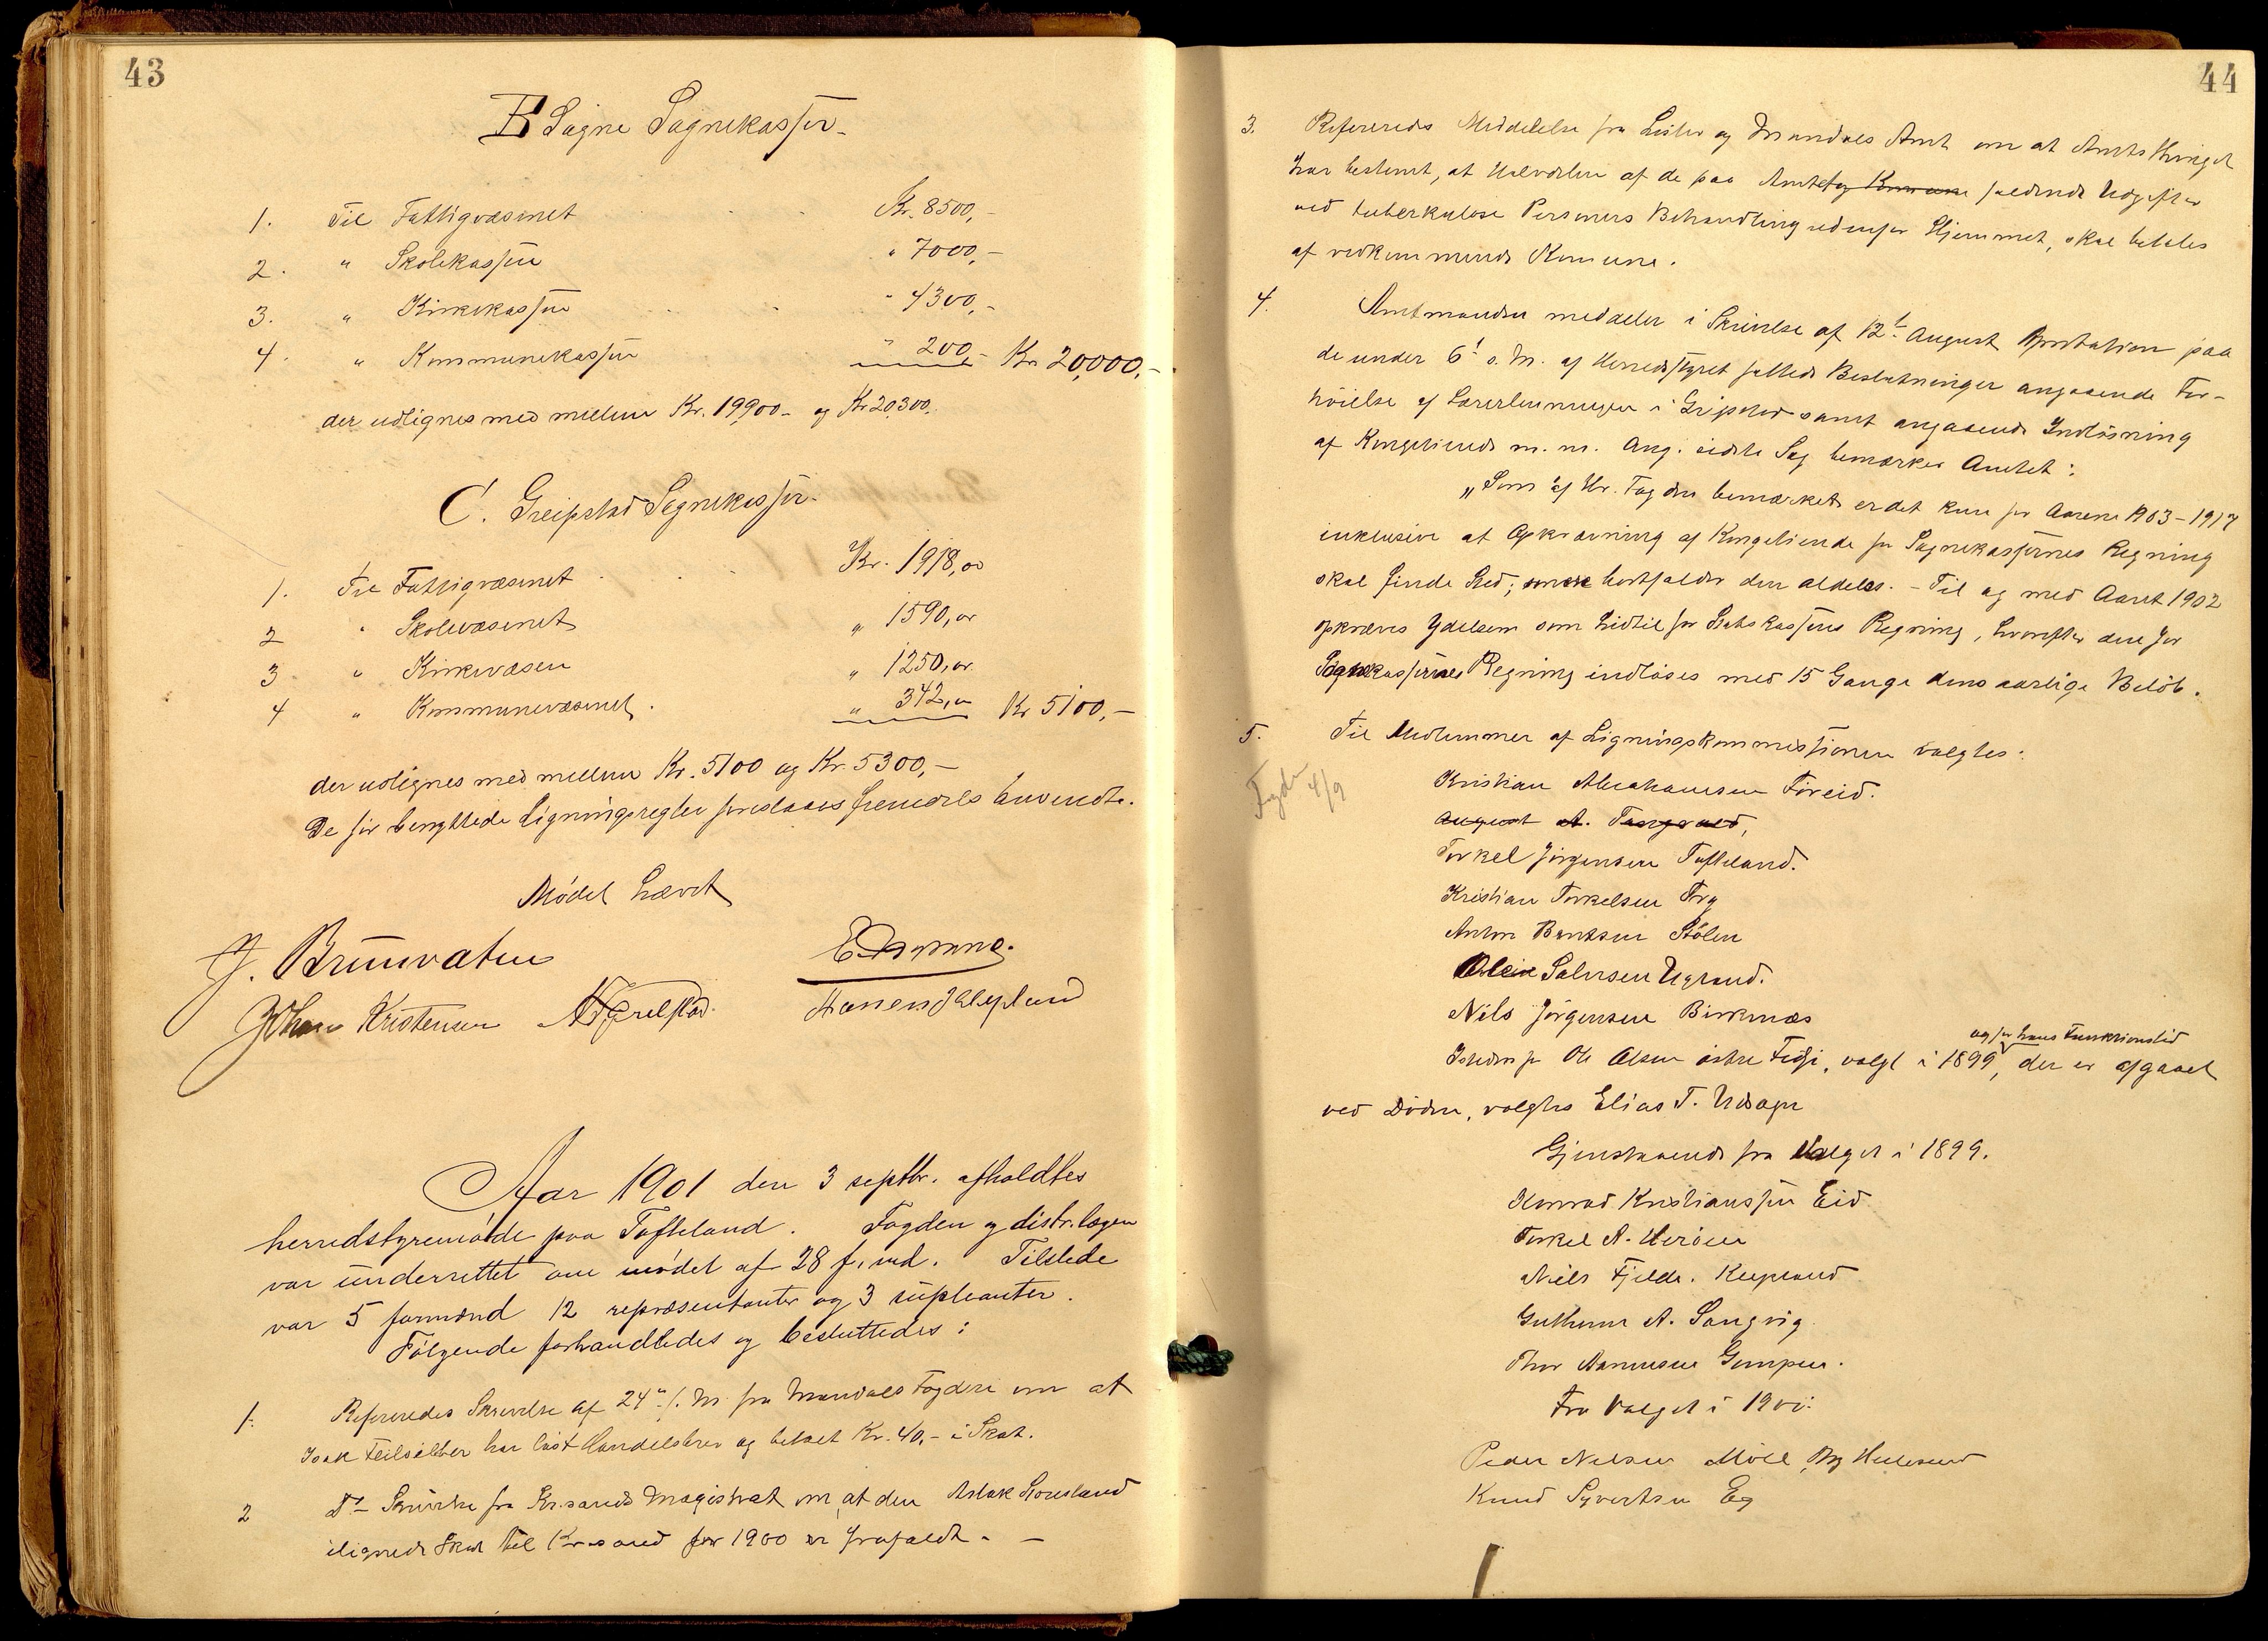 43
B Søgne Sognekasser
1. Til Fattigvæsenet Kr. 8500,-
2. " Skolekassen " 7000,-
3. " Kirkekassen " 4300,-
4. " Kommunekassen " 200,- Kr 20,000,-
der udlignes med mellem Kr. 19,900- og Kr 20,300.
C. Greipstad Sognekasser.
1. Til Fattigvæsenet Kr. 1918,00
2 " Skolevæsenet " 1590,00
3 " Kirkevæsen " 1250,00
4 " Kommunevæsenet. " 342,00 Kr 5100,-
der udlignes med mellem Kr. 5100 og Kr. 5300,-
De før benyttede Ligningsregler foreslaaes fremdeles anvendte.
Mødet hævet
J. Brunvatne
Johan Kristensen
Aar 1901 den 3 septbr. afholdtes
herredstyremøde paa Tofteland. Fogden og distr.lægen
var underrettet om mødet af 28 f. md. Tilstede
var 5 formænd 12 repræsentanter og 3 supleanter.
Følgende forhandledes og besluttedes:
1. Refereredes Skrivelse af 24de f. M. fra Mandals Fogderi om at
Isak Feilsilber har løst Handelsbrev og betalt Kr. 40,- i Skat.
2 Do Skrivelse fra Kr.sands Magistrat om, at den Aslak Stousland
ilignede Skat til Kr.sand for 1900 er frafaldt. -
44
3. Refereredes Meddelelse fra Lister og Mandals Amt om at Amtsthinget
har bestemt, at Halvdelen af de paa Amtet og Kommune faldende Udgifter
ved tuberkuløse Personers Behandling udenfor Hjemmet, skal betales
af vedkommende Komune.
4. Amtmanden meddeler i Skrivelse af 12te August Approbation paa
de under 6te s. M. af Herredstyret fattede Beslutninger angaaende For-
høielse af Lærerlønningen i Gripstad samt angaaende Indløsning
af Kongetiende m. m. Ang. sidste Sag bemærker Amtet:
"Som af Hr. Fogden bemærket er det kun for Aarene 1903-1917
inklusive at Opkrævning af Kongetiende for Sognekassernes Regning
skal finde Sted; bortfalder den aldeles. - Til og med Aaret 1902
opkræves Ydelsen som hidtil for Statskassens Regning, hvorefter den for
Sognekassernes Regning indløses med 15 Gange dens aarlige Beløb.
5. Til Medlemmer af Ligningskommissionen valgtes:
Fogden 4/9
Kristian Abrahamsen Føreid.
August A. Tangvald,
Torkel Jørgensen Tofteland.
Kristian Torkelsen Try
Anton Berntsen Stølen
Salvesen Ugland.
Nils Jørgensen Birknæs
og for hans Funktionstid
Istedenfor Ole Olsen østre Fidje, valgt i 1899, der er afgaaet
ved Døden, valgtes Elias T. Udsogn
Gjenstaaende fra Valget i 1899.
Konrad Kristianssen Eid
Torkel A. Herøen
Niels Fjelde. Repstad
Guthorm A. Langvig
Thor Aanensen Gumpen.
Fra Valget i 1900:
Peder Nielsen Møll, Ny Hellesund
Knud Syvertsen Eg